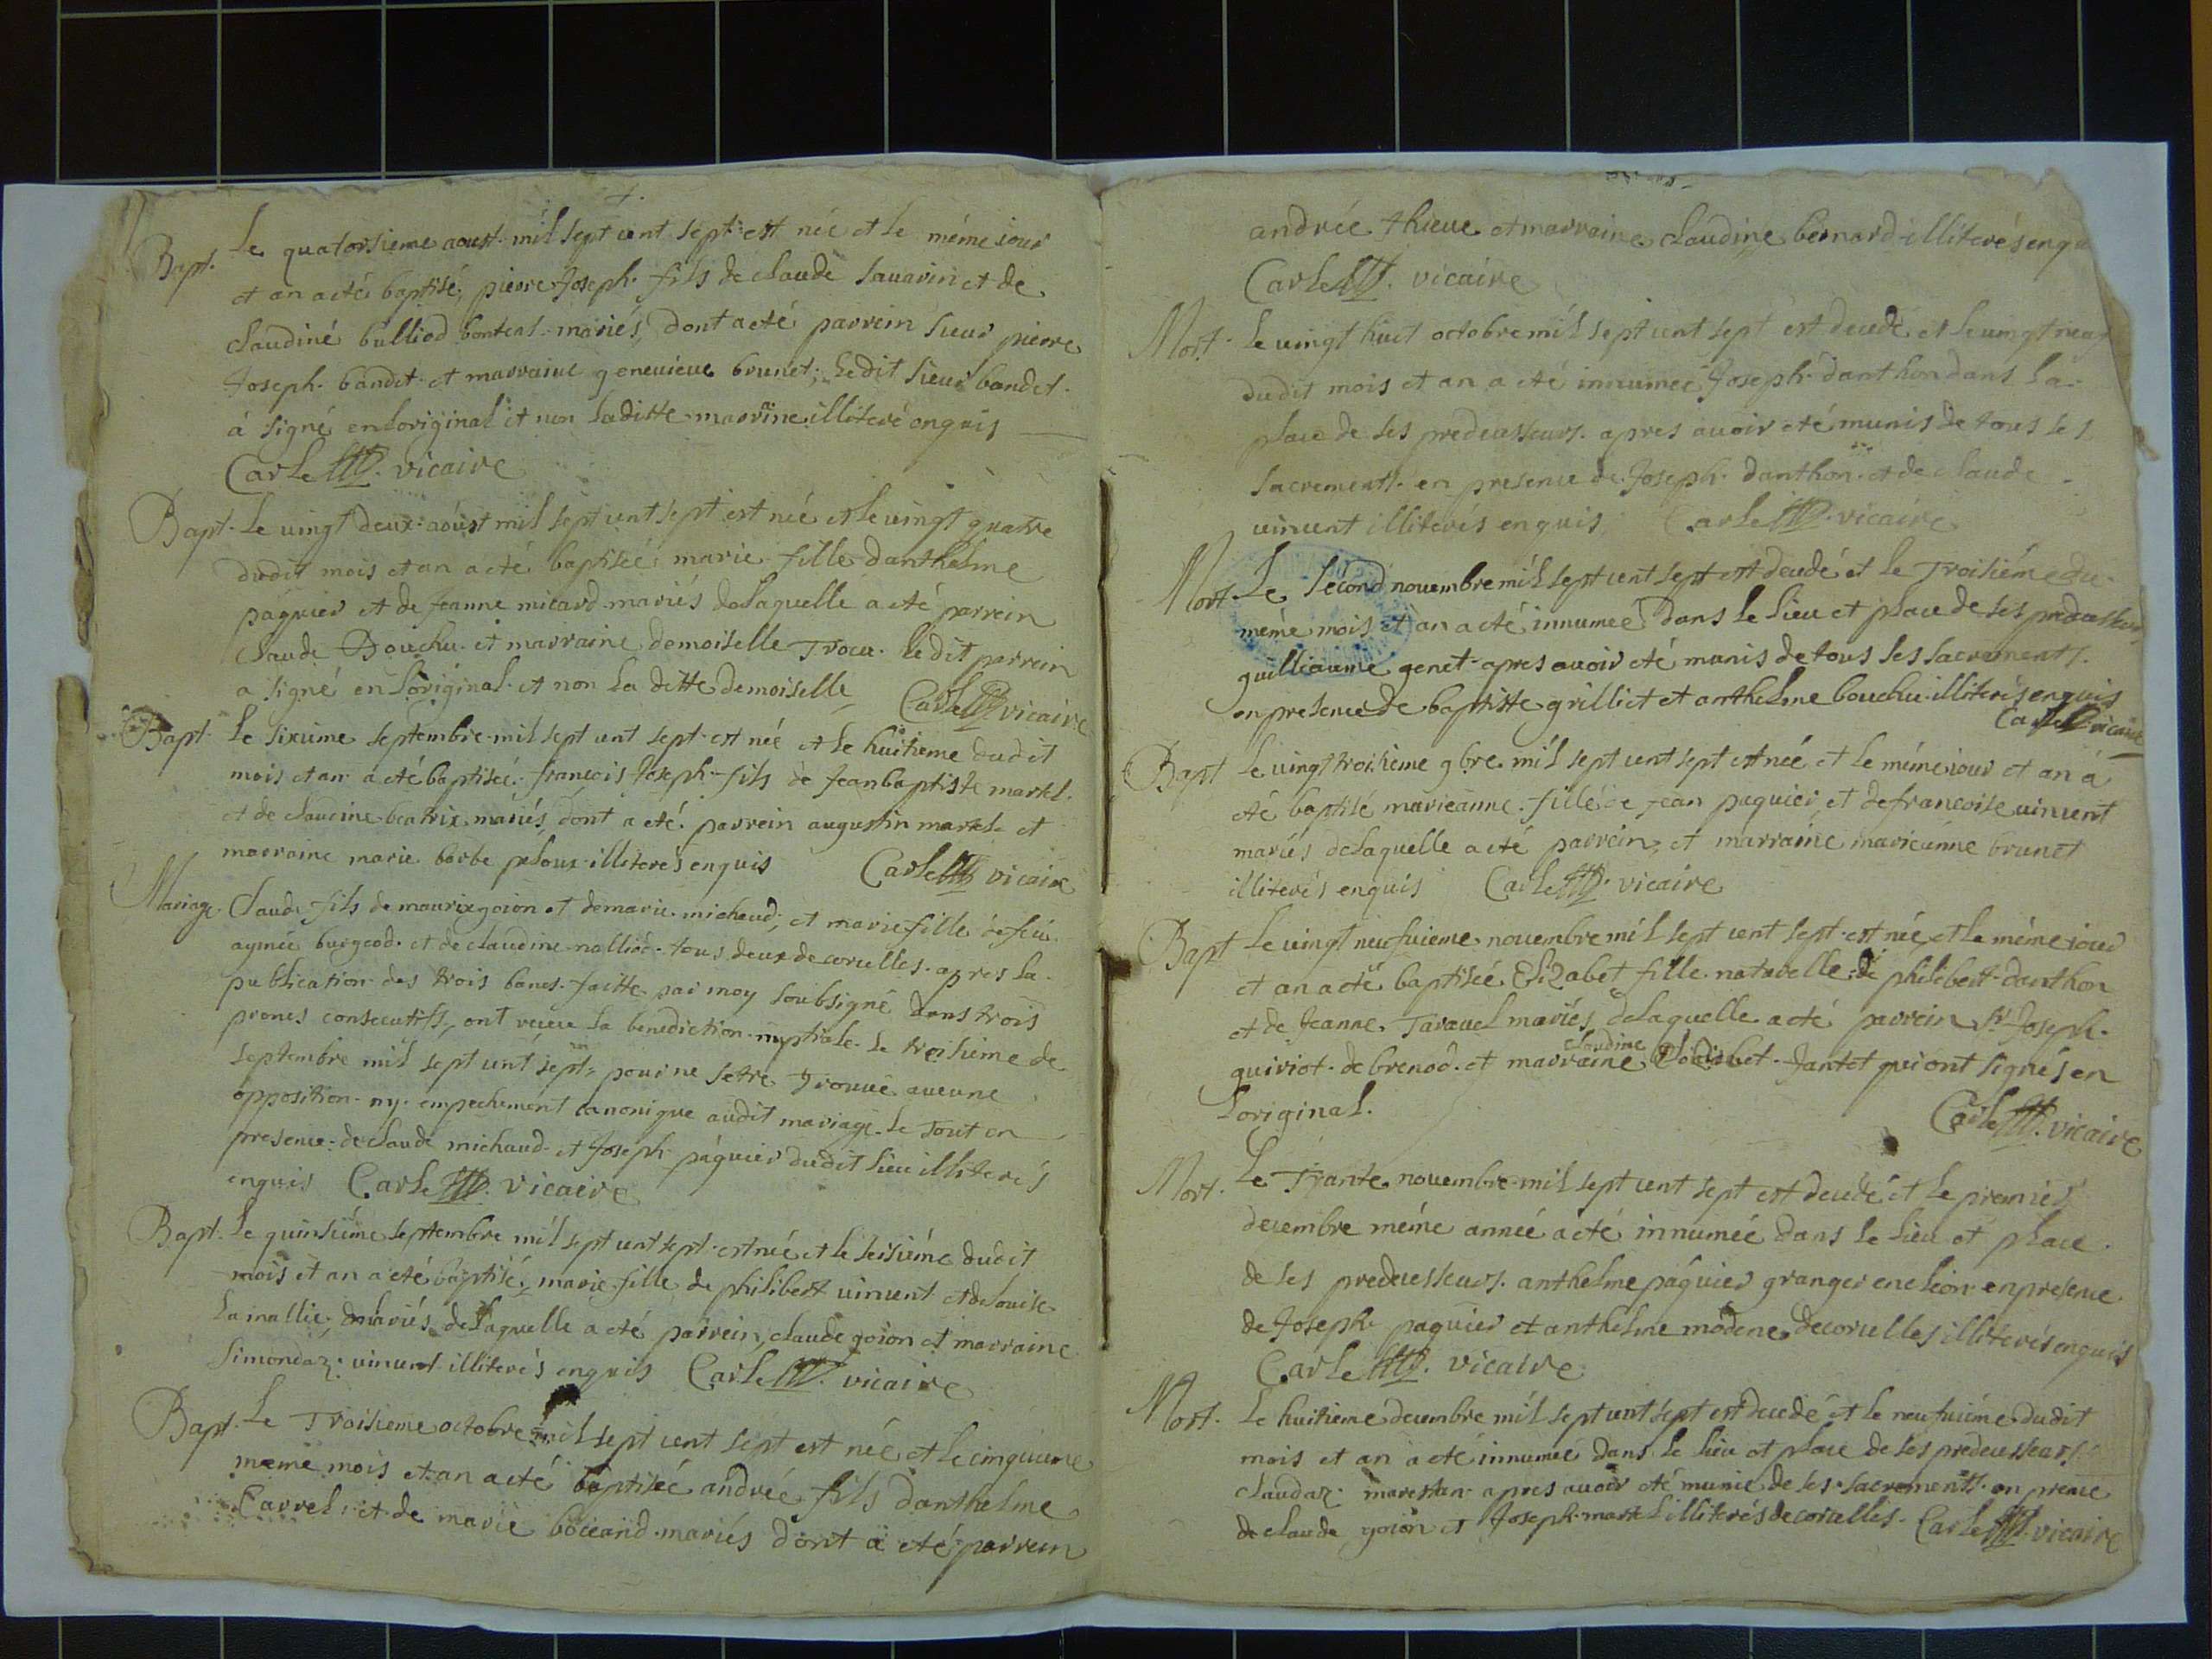 Bapt. Le quatorsieme aoust mil sept cent sept est née et le méme iour
et an a eté baptisé, pierre Joseph fils de claude sauarin et de
claudiné bulliod mariés, dont a eté parrein sieur pierre
Joseph bandet et marraine geneuieue brunet, ledit sieur bandet
à signé en loriginal et non laditte marrine illiteré enquis
Carle vicaire
Bapt. Le uingt deux aoust mil sept cent sept est née et le uingt quatre
dudit mois et an a eté baptiseé marie fille danthelme
paquier et de Jeanne micard mariés delaquelle a eté parrein
claude Bouchu et marraine demoiselle Trocu ledit parrein
a signé en loriginal et non la ditte demoiselle Carle vicaire
Bapt. Le sixieme septembre mil sept cent sept est née et le huitieme dudit
mois et an a eté baptiseé françois Joseph fils de Jean baptiste martel
et de claudine beatrix mariés, dont a eté parrein augustin martel et
marraine marie barbe peloux illiterés enquis Carle vicaire
Mariage. Claude fils de maurix goion et de marie michaud, et marie fille de feu
aymée burgod et de claudine nalliód tous deux de corcelles apres la
publication des trois bancs faitte par moy soubsigné dans trois
prones consecutifs, ont receu la benediction nuptiale le troisieme de
septembre mil sept cent sept, pour ne setre Trouué aucune
opposition ny empechement canonique audit mariage le Tout en
presence de claude michaud et Joseph páquier dudit lieu illiterés
enquis Carle vicaire
Bapt. Le quinsiéme septembre mil sept cent sept est née et le seisiéme dudit
mois et an a eté baptisé, marie fille de philibert uincent et de louise
lamallie, mariés, delaquelle a eté parrein, claude goion et marraine
Simondaz uincent illiterés enquis Carle vicaire
Bapt. Le Troisieme octobre mil sept cent sept est née et le cinquieme
méme mois et an a eté baptiseé andreé fils danthelme
Carrel et de marie boccand mariés dont a eté parrein
andreé thieue et marraine claudine bernard illiterés enquis
Carle vicaire
Mort. Le uingt huit octobre mil sept cent sept est decedé et le uingt neuf
dudit mois et an a eté innumeé Joseph danthon dans la
place de ses predecesseurs apres auoir eté munis de tous ses
sacrements en presence de Joseph danthon et de claude
uincent illiterés enquis, Carle vicaire
Mort. Le second nouembre mil sept cent sept est decedé et le Troisiéme du
méme mois et an a eté innumeé dans le lieu et place de ses predecesseurs
guilliaume genet apres auoir eté munis de tous ses sacrements
en presence de baptiste grilliet et anthelme bouchu illiterés enquis
Carle vicaire
Bapt Le uingt troisieme 9bre mil sept cent sept est née et le méme iour et an a
eté baptisé marieanne fille de Jean paquier et de francoise uincent
mariés delaquelle a eté parrein, et marraine marieanne brunet
illiterés enquis Carle vicaire
Bapt Le uingt neufuieme nouembre mil sept cent sept est née et le méme iour
et an a eté baptiseé Elizabet fille naturelle de philibert danthon
et de Jeanne Tarauel mariés delaquelle a eté parrein Sr Joseph
claudine
quiriot de brenod et marraine Jantet qui ont signés en
loriginal. Carle vicaire
Mort. Le Trante nouembre mil sept cent sept est decedé et le premier
decembre méme anneé a eté innumeé dans le lieu et place
de ses predecesseurs anthelme páquier granger en presence
de Joseph paquier et anthelme modene de corcelles illiterés enquis
Carle vicaire
Mort. Le huitieme decembre mil sept cent sept est decedé et le neufuiéme dudit
mois et an a eté innumeé dans le lieu et place de ses predecesseurs
claudaz marestan apres auoir eté munie de ses sacrements en prence
de claude goion et Joseph martel illiterés de corcelles Carle vicaire